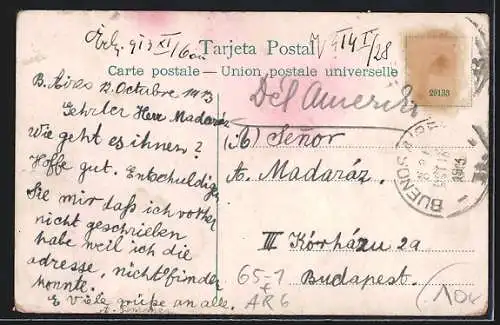 Érk. 913 XI/6án
V 914 I/28
Tarjeta Postal
Carte postale — Union postale universelle
29133
B. Aires 2. Octubre 1913
Del Amerika
Gehrter Herr Madaráz
Wie geht es ihnen?
Hoffe gut. Entschuldigen
Sie mir daß ich vorher
nicht geschrieben
habe weil ich die
adresse, nicht finden
konnte.
Viele grüße an alle.
Señor
A. Madaráz.
III Kórházu 2a
Budapest.
BUENOS
1913
65-1
+
AR6
10v